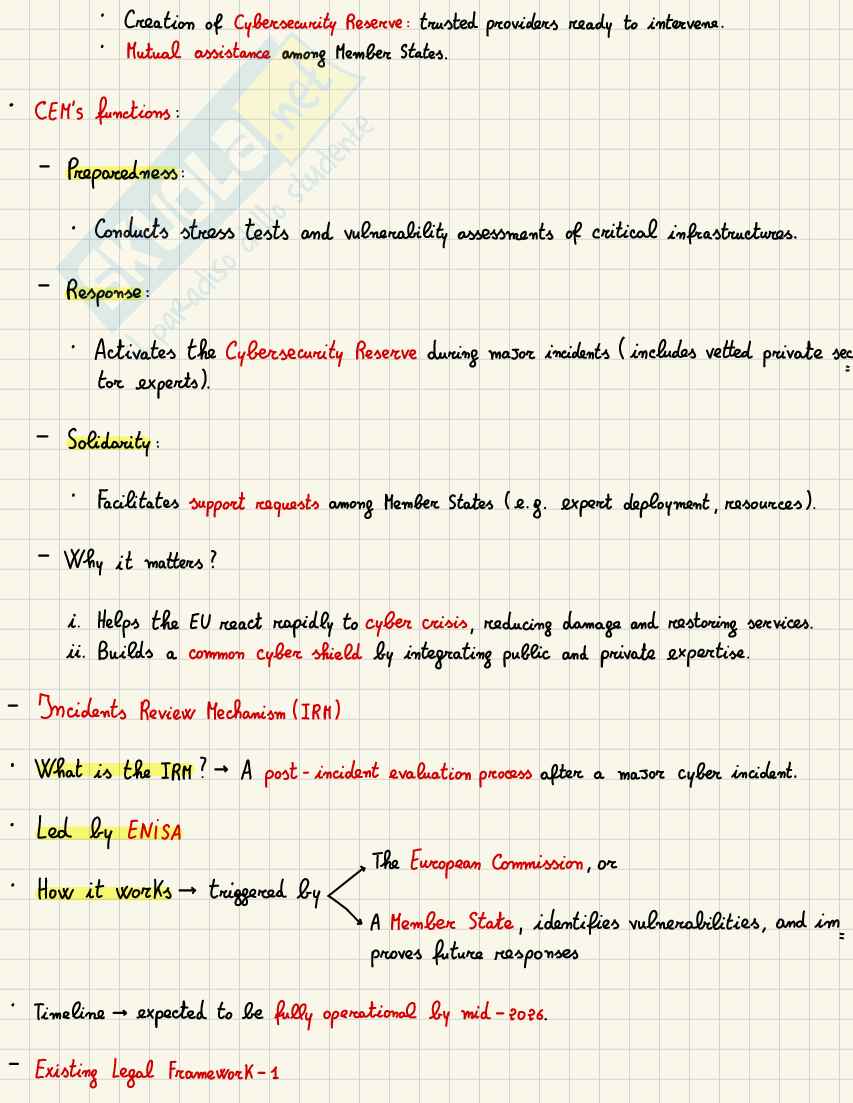 · Creation of Cybersecurity Reserve: trusted providers ready to intervene.
· Mutual assistance among Member States.
· CEM's functions:
– Preparedness:
· Conducts stress tests and vulnerability assessments of critical infrastructures.
– Response:
· Activates the Cybersecurity Reserve during major incidents (includes vetted private sec
tor experts).
– Solidarity:
· Facilitates support requests among Member States (e.g. expert deployment, resources).
– Why it matters?
i. Helps the EU react rapidly to cyber crisis, reducing damage and restoring services.
ii. Builds a common cyber shield by integrating public and private expertise.
– Incidents Review Mechanism (IRM)
· What is the IRM? → A post-incident evaluation process after a major cyber incident.
· Led by ENISA
· How it works → triggered by
The European Commission, or
A Member State, identifies vulnerabilities, and im
proves future responses
· Timeline → expected to be fully operational by mid-2026.
– Existing Legal Framework-1
skuola.net
il paradiso dello studente